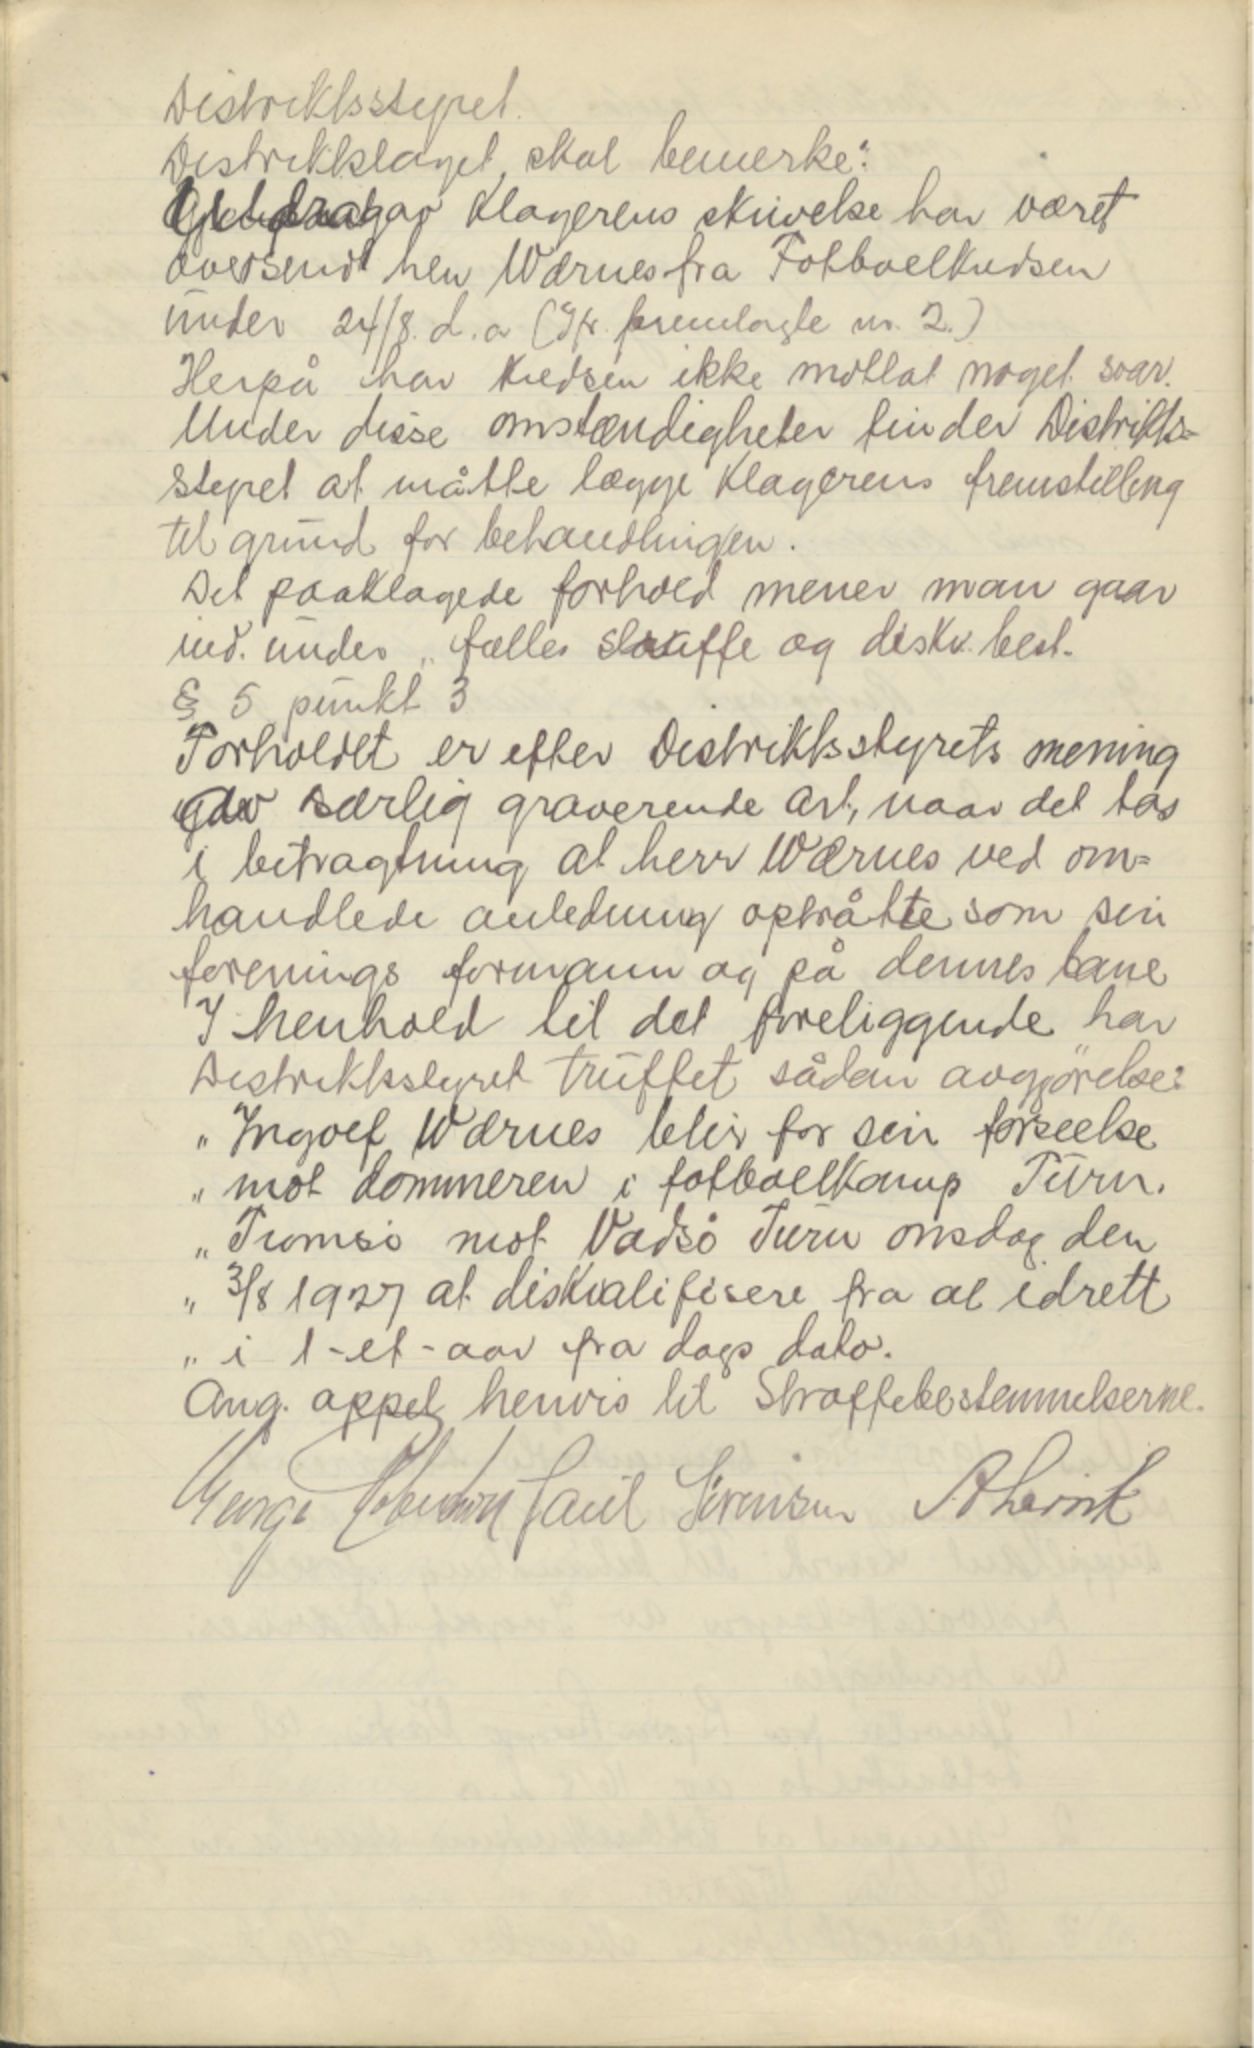 Distriktsstyret.
Distriktslaget skal bemerke:
Utdrag av Klagerens skrivelse har været
oversendt herr Wærnes fra Fotballkredsen
under 24/8. d. a (Jfr. fremlagte nr. 2.)
Herpå har Kredsen ikke mottat noget svar.
Under disse omstændigheter finder Distrikts-
styret at måtte lægge Klagerens fremstilling
til grund for behandlingen.
Det paaklagede forhold mener man gaar
ind. under „ fælles straffe og diskv. best.
§ 5 punkt 3
Forholdet er efter Distriktsstyrets mening
av særlig graverende art, naar det tas
i betragtning at herr Wærnes ved om=
handlede anledning optråtte som sin
forenings formann og på dennes bane
I henhold til det foreliggende har
Distriktsstyret truffet sådan avgjörelse:
„ Ingolf Wærnes blir for sin forseelse
„ mot dommeren i fotballkamp Turn.
„ Tromsö mot Vadsö Turn onsdag den
„ 3/8 1927 at diskvalifisere fra al idrett
„ i 1-et-aar fra dags dato.
Ang. appel henvis til Straffebestemmelserne.
George Paul Sörensen